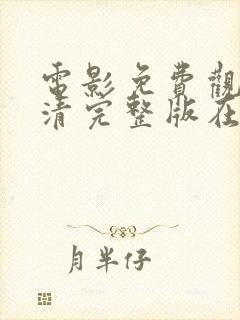 電影免費觀
清完整版在
月半仔